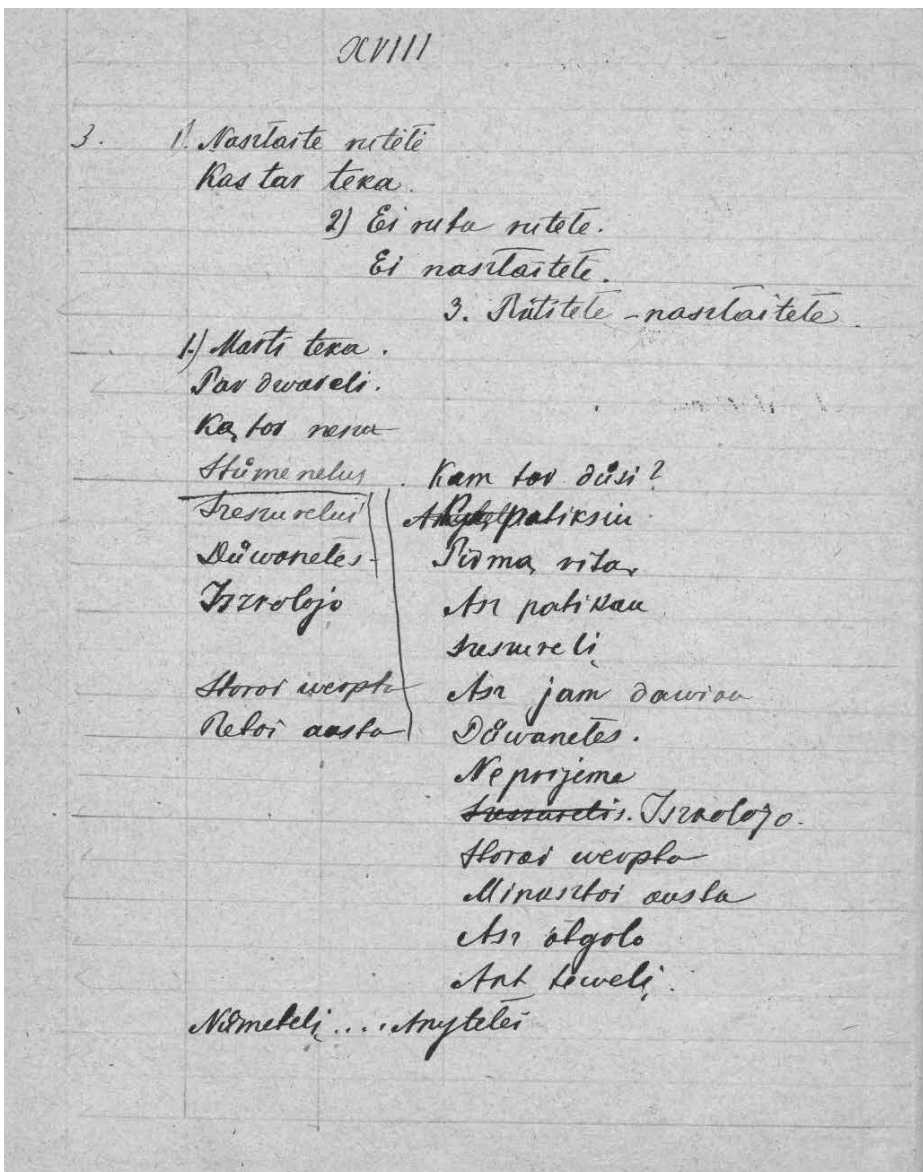 XVIII
3. 1. Nasztaite rutėlė
Kas tar teka.
2) Ei ruta rutelė.
Ei nasztaitėlė.
3. Rutitelė - nasztaitelė
1.) Marti teka.
Par dwareli.
Ką tor nesza
Stůmenelus
Szeszurelui
Důwanelės
Iszkolojo
Storai werpta
Retai austa
Kam tor důsi?
patiksiu
Pirmą vitą
Asz patikau
Szeszurelį
Asz jam dawiau
Důwanelės.
Ne prijema
Szeszurelis. Iszkolojo.
Storai werpta
Minksztai austa
Asz atgalo
Ant tewelį.
Nůmetelį.... Anytelei